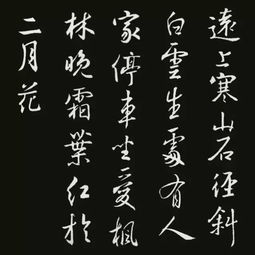 遠上寒山石径斜
白雲生處有人
家停車坐愛楓
林晚霜葉紅於
二月花